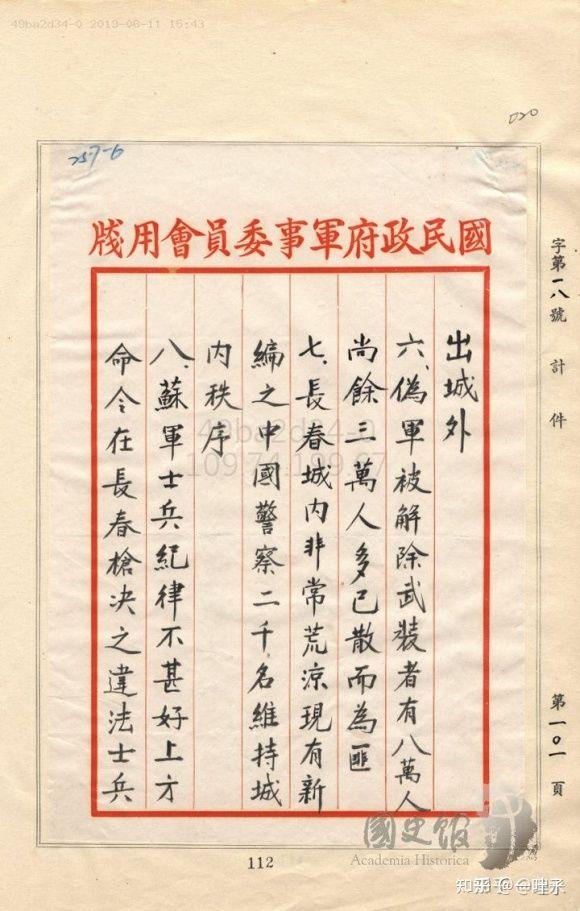 49ba2d34-0 2019-06-11 15:43
020
257-6
國民政府軍事委員會用牋
字第一八號 計 件
出城外
六、偽軍被解除武裝者有八萬人
尚餘三萬人多已散而為匪
七、長春城內非常荒涼現有新
編之中國警察二千名維持城
內秩序
八、蘇軍士兵紀律不甚好上方
命令在長春槍決之違法士兵
第一〇一頁
49ba2d34-0
109.74.199.67
國史館
Academia Historica
112